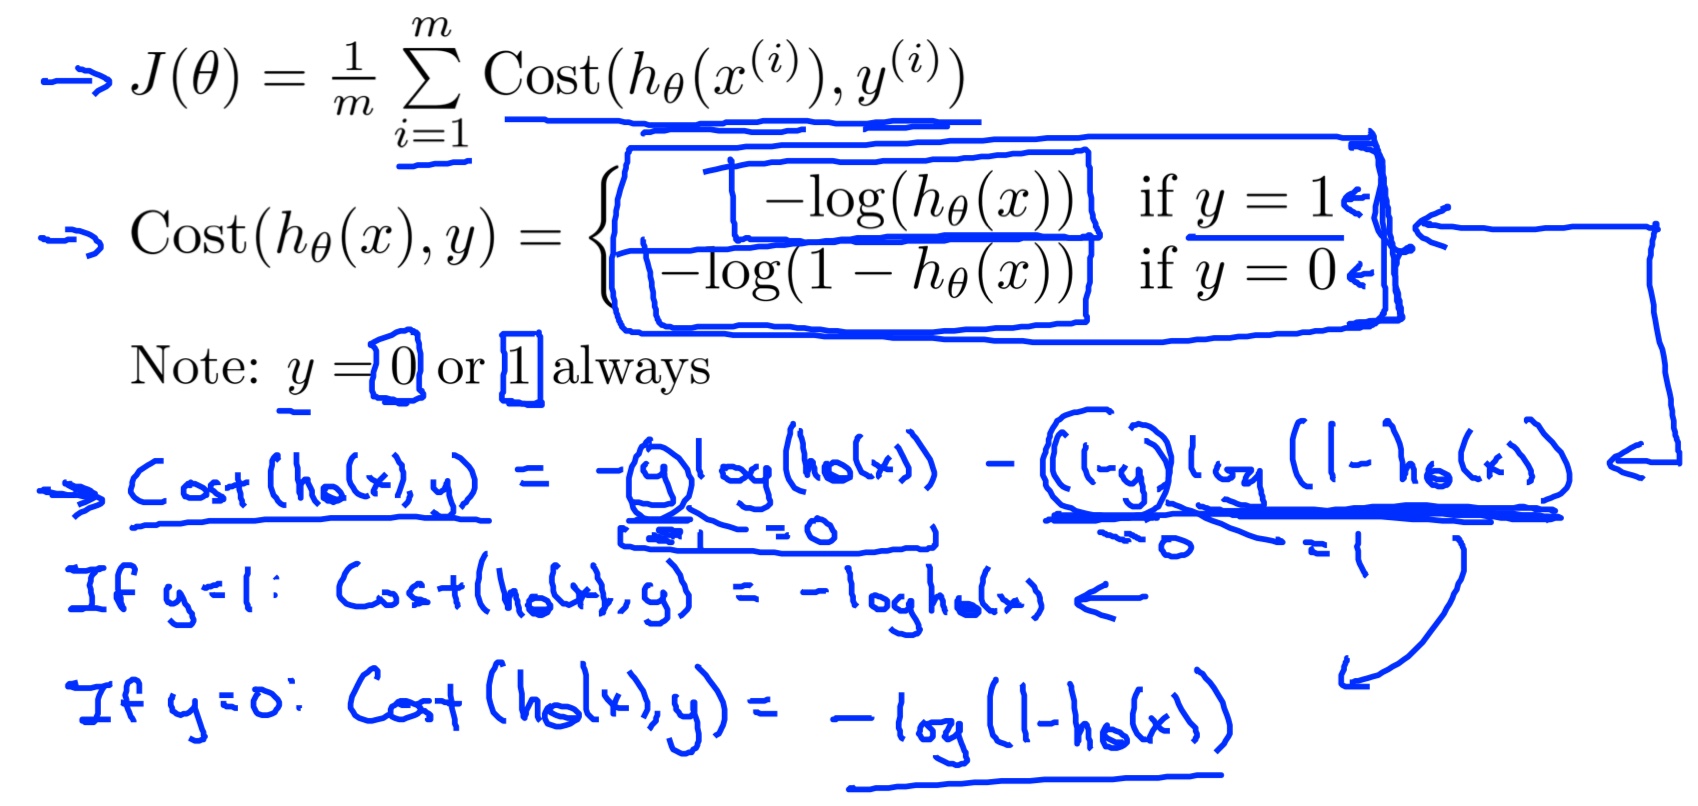 → J(θ) = 1/m ∑_{i=1}^{m} Cost(h_θ(x^{(i)}), y^{(i)})
→ Cost(h_θ(x), y) = { −log(h_θ(x)) if y = 1 ←
−log(1 − h_θ(x)) if y = 0 ←
Note: y = 0 or 1 always
→ Cost(h_θ(x), y) = −y log(h_θ(x)) − (1−y) log(1−h_θ(x)) ←
=1 =0 =0 =1
If y=1: Cost(h_θ(x), y) = −log h_θ(x) ←
If y=0: Cost(h_θ(x), y) = −log(1−h_θ(x))